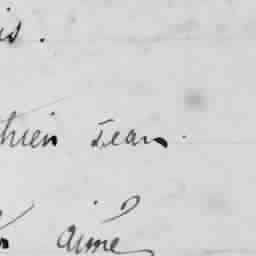 is.
thien Jean.
aimé